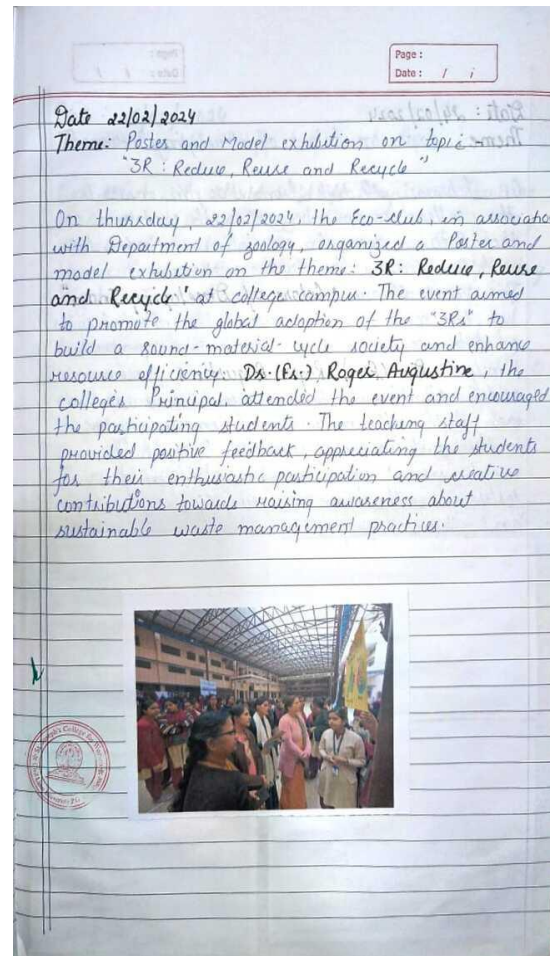 Page :
Date : / /
Date 22/02/2024
Theme: Poster and Model exhibition on topic
"3R : Reduce, Reuse and Recycle"
On thursday, 22/02/2024, the Eco-club, in associato
with Department of zoology, organized a Poster and
model exhibition on the theme: 3R: Reduce, Reuse
and Recycle' at college campus. The event aimed
to promote the global adoption of the "3Rs" to
build a sound-material-cycle society and enhance
resource efficiency. Dr.(Fr.) Roger Augustine, the
college's Principal, attended the event and encouraged
the participating students. The teaching staff
provided positive feedback, appreciating the students
for their enthusiastic participation and creative
contributions towards raising awareness about
sustainable waste management practices.